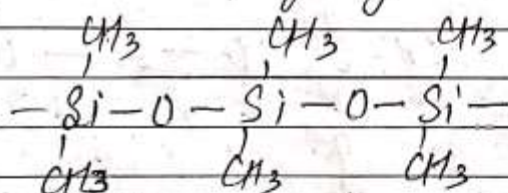 CH3 CH3 CH3
-Si-O-Si-O-Si-
CH3 CH3 CH3